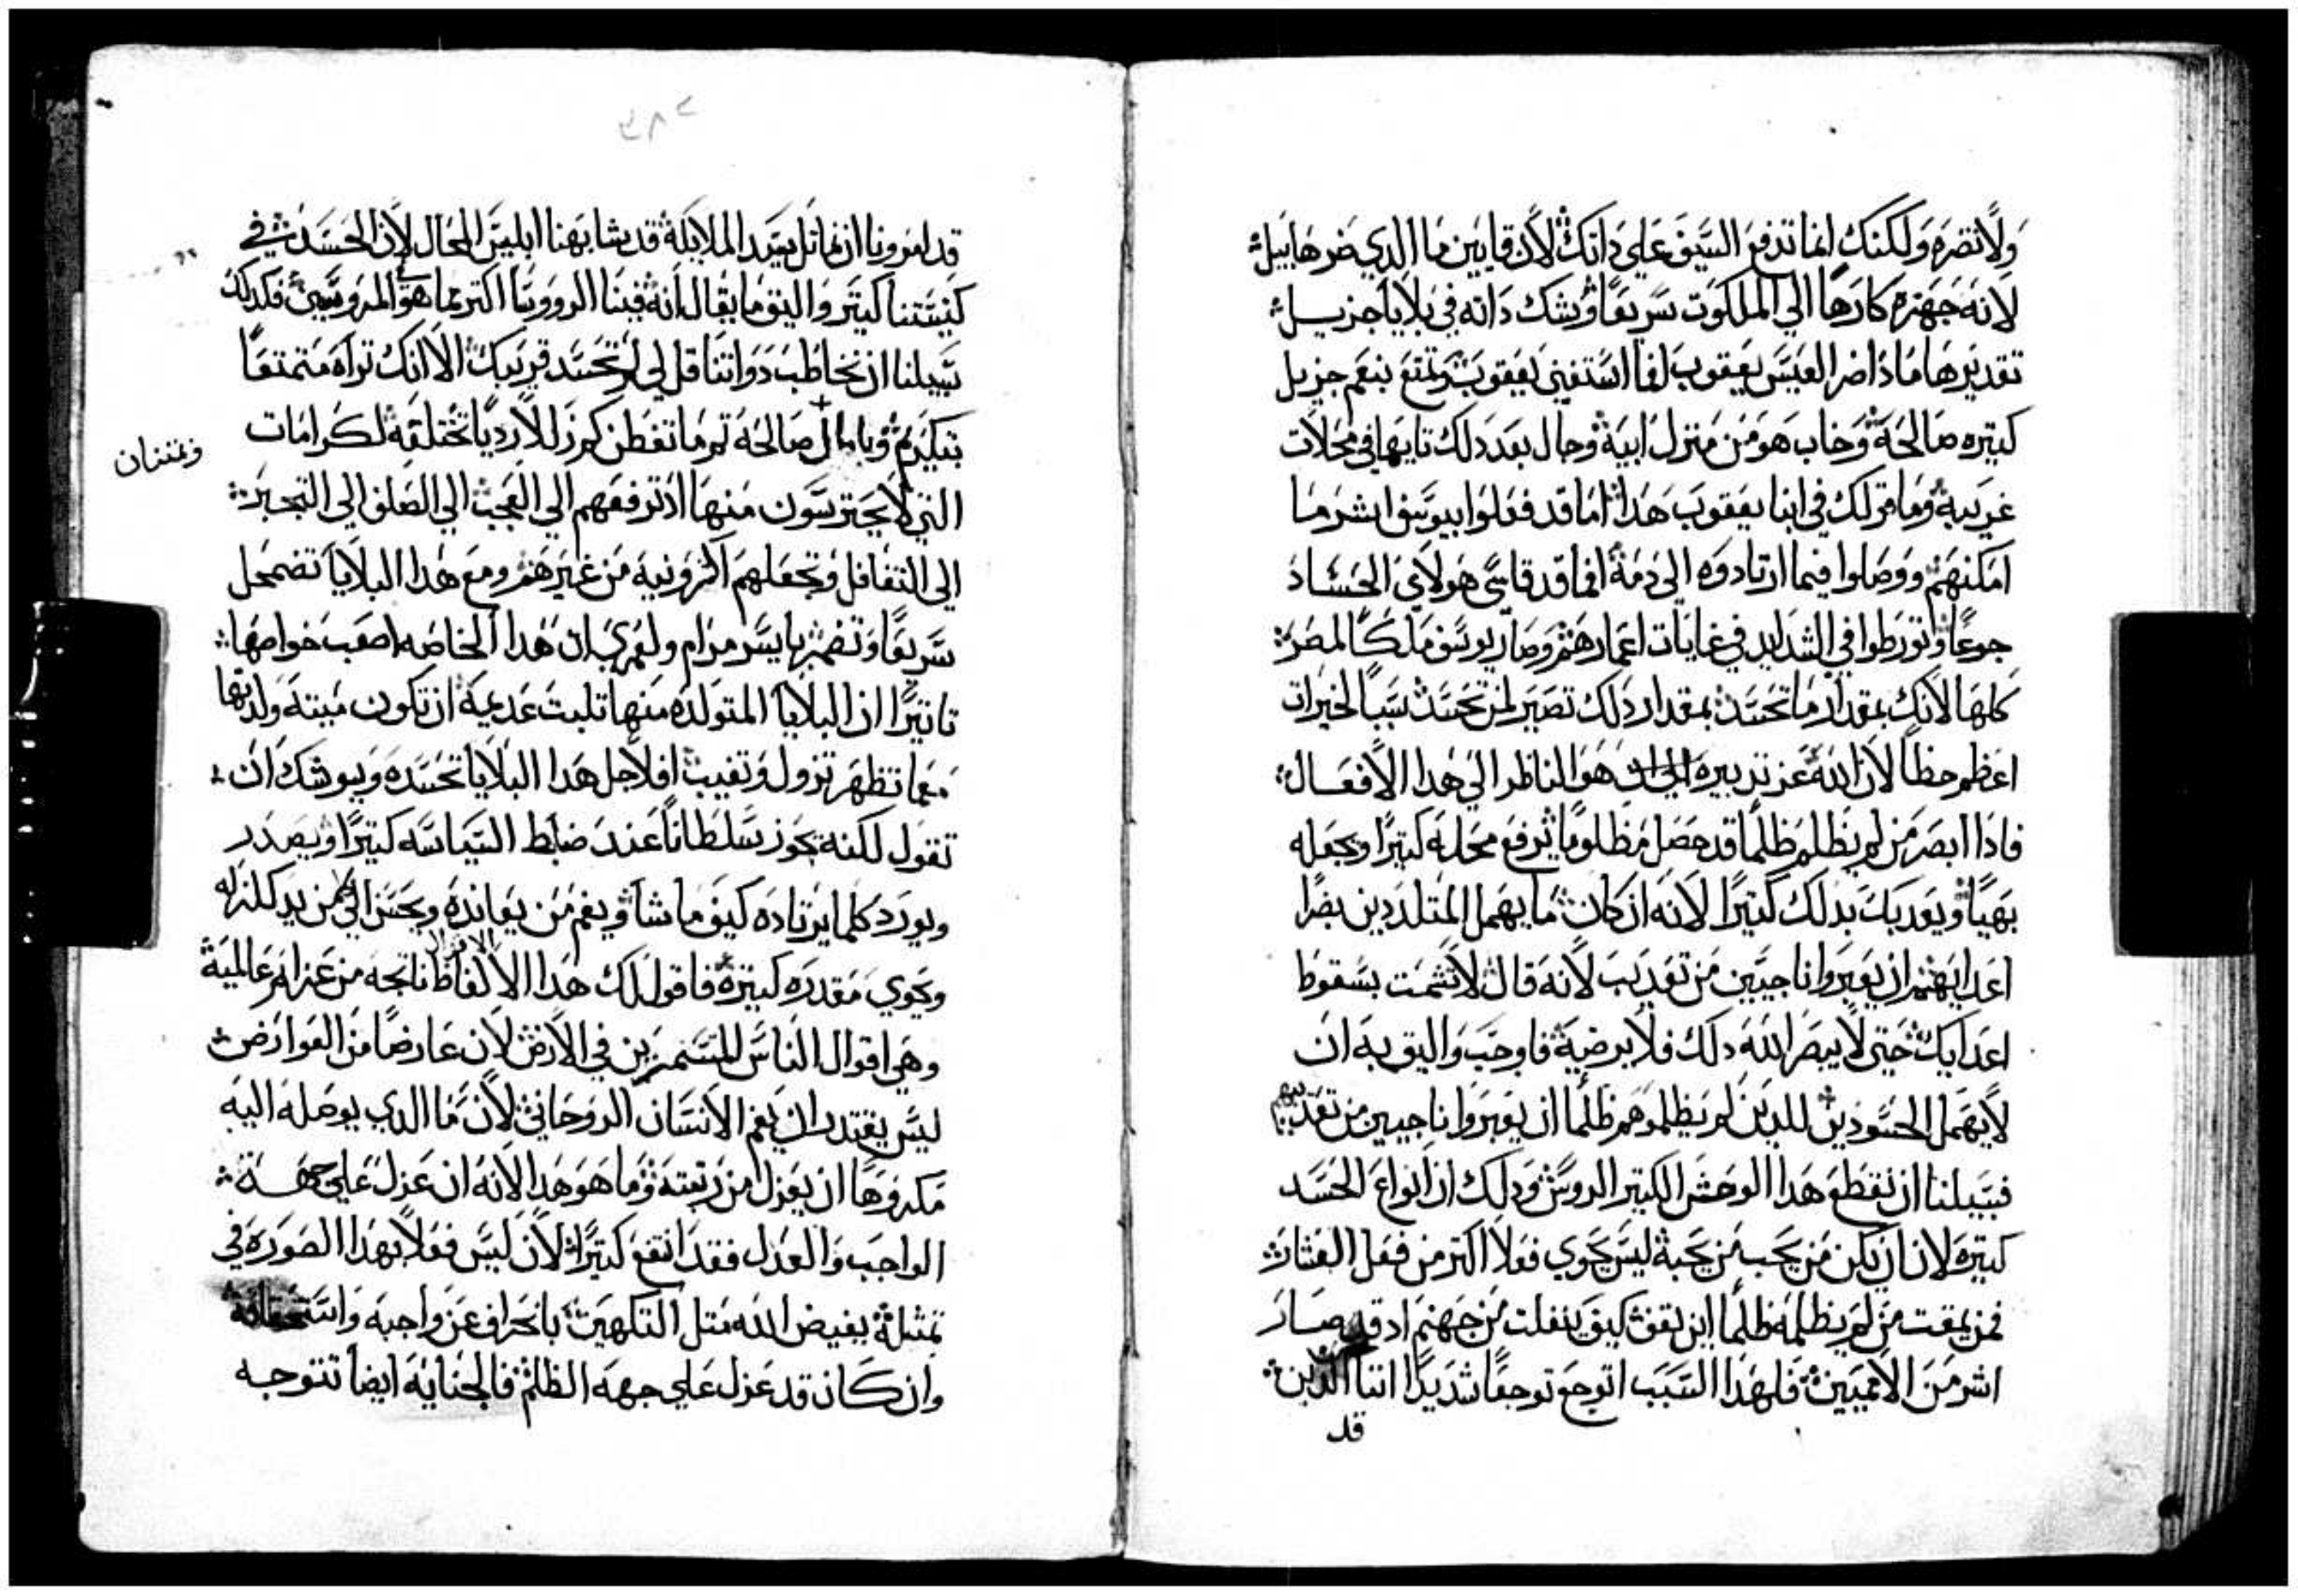 ولا تضره ولكنك انما تدفع السيف علي داتك لان قايين ما الدي ضر هابيل
لانه جهزه كارها الي الملكوت سريعا وشك داته في بلايا جزيل
تقديرها مادا ضر العيس يعقوب لما استغني يعقوب وتمتع بنعم جزيل
كتيره صالحة وخاب هو من منزل ابية وجال بعد دلك تايها في محلات
غريبة وما قولك في ابنا يعقوب هدا اما قد فعلوا بيوسف اشر ما
امكنهم ووصلوا فيما ارتادوه الي دمة افما قد قاسي هولاي الحساد
جوعا وتورطوا في الشدايد في غايات اعمارهم وصار يوسف ملكا لمصر
كلها لانك بمقدار ما تحسد بمقدار دلك تصير لمن تحسد سببا لخيرات
اعظم حظا لان الله عز تدبيره هو الناظر الي هدا الافعال
فادا ابصر من لم يظلم ظلما قد حصل مظلوما يرفع محله كتيرا ويجعله
بهيا ويعدبك بدلك كتيرا لانه ان كان ما يهمل المتلددين بضرا
اعدايهم ان يعبروا ناجيين من تعديب لانه قال لا تشمت بسقوط
اعدايك حتي لا يبصر الله دلك فلا يرضية فاوجب واليق به ان
لا يهمل الحسودين للدين لم يظلموهم ظلما ان يعبروا ناجيين من تعديبهم
فسبيلنا ان نقطع هدا الوحش الكتير الروس ودلك ان انواع الحسد
كتيره لان ان يكن من يحب من يحبة ليس يحوي فعلا اكتر من فعل العشار
فمن يمقت من لم يظلمه ظلما اين يقف كيف ينفلت من جهنم اد قد صار
اشر من الامميين فلهدا السبب اتوجع توجعا شديدا اننا الدين
قد
قد امرونا ان نماتل سيد الملايكة قد شابهنا ابليس المحال لان الحسد في
كنيستنا كتير واليق ما يقال انة فينا الرووسا اكتر مما هو في المروسين فكدلك
سبيلنا ان نخاطب دواتنا قل لي لم تحسد قريبك الا انك تراه متمتعا
بتكريم وباقوال صالحة تم ما تفطن كم رزايا رديا تختلقه لكرامات
وتمتنان
التي لا يحترسون منها اد ترفعهم الي العجب الي الصلف الي التجبر
الي التغافل وتجعلهم اكتر ونية من غيرهم ومع هدا البلايا تضمحل
سريعا وتضمر بايسر مرام ولعمري ان هدا الخاصه اصعب خواصها
تاتيرا ان البلايا المتولده منها تلبت عديمة ان تكون ميته ولدتها
معما تظهر تزول وتغيب افلاجل هدا البلايا تحسده ويوشك ان
تقول لكنه يحوز سلطانا عند ضابط السياسه كتيرا ويصدر
ويورد كلما يرتاده كيف ما شا ويغم من يعانده ويحسن الي من يدكلز له
ويحوي مقدره كتيرة فاقول لك هدا الالفاظ ناتجه من عزايم عالمية
الاقوال
وهي اقوال الناس المتسمرين في الارض لان عارضا من العوارض
ليس يقتدر ان يغم الانسان الروحاني لان ما الدي يوصله اليه
مكروها ان يعزل من رتبته وما هو هدا لانه ان عزل علي جهة
الواجب والعدل فقد انتفع كتيرا لان ليس فعلا بهدا الصوره في
تمتلة بغيض الله متل التكهن بانحراف عن واجبه واستحقاقه
وان كان قد عزل علي جهه الظلم فالجناية ايضا تتوجه